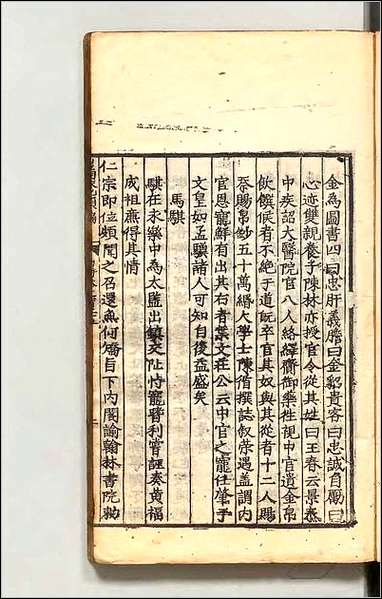 金為圖書四曰忠肝義膽曰金貂貴客曰忠誠自勵曰
心迹雙親養子陳林亦授官令從其姓曰王春云景泰
中疾詔大醫院官八人絡繹齎御藥往視中官遺金帛
飲饌候者不絕于道既卒官其奴與其從者十二人賜
祭賜帛鈔五十萬緡大學士陳循撰誌叙榮遇蓋謂內
官恩寵鮮有出其右者葉文莊公云中官之寵任肇于
文皇如孟驥諸人可知自後益盛矣
馬騏
騏在永樂中為太監出鎮交阯恃寵營利嘗誣奏黃福
成祖燕得其情
仁宗即位頻聞之召還無何矯旨下內閣諭翰林書院勑